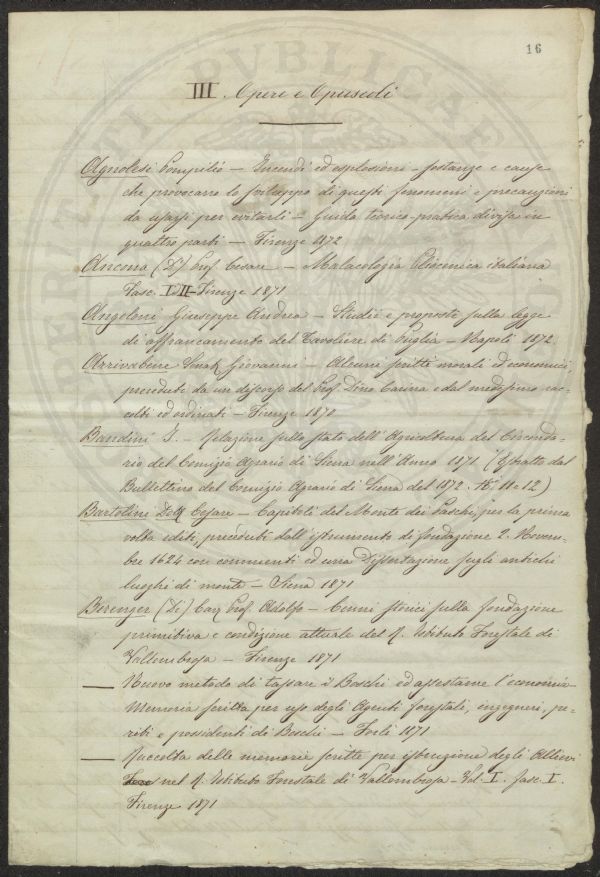 16
III. Opere e Opuscoli
Agnolesi Pompilio — Incendi ed esplosioni - sostanze e cause
che provocano lo sviluppo di questi fenomeni e precauzioni
da usarsi per evitarli - Guida teorico-pratica divisa in
quattro parti — Firenze 1872
Ancona (D') Prof. Cesare — Malacologia Pliocenica italiana
Fasc. I II - Firenze 1871
Angeloni Giuseppe Andrea — Studii e proposte sulla legge
di affrancamento del Tavoliere di Puglia — Napoli 1872
Arrivabene Giovanni — Alcuni scritti morali ed economici
preceduti da un discorso del Prof. Dino Carina e dal medesimo rac-
colti ed ordinati — Firenze 1870
Bandini — Relazione sullo stato dell'Agricoltura del Circonda-
rio del Comizio Agrario di Siena nell'Anno 1871 (Estratto dal
Bullettino del Comizio Agrario di Siena del 1872. 11 e 12)
Bartolini Cesare — Capitoli del Monte dei Paschi, per la prima
volta editi, preceduti dall'istrumento di fondazione 2. Novem-
bre 1624 con commenti ed una Dissertazione sugli antichi
luoghi di monte — Siena 1871
Berenger (Di) Prof. Adolfo — Cenni storici sulla fondazione
primitiva e condizione attuale del R. Istituto Forestale di
Vallombrosa — Firenze 1871
— Nuovo metodo di tassare i Boschi ed assestarne l'economia -
Memoria scritta per uso degli Agenti forestali, ingegneri, pe-
riti e possidenti di Boschi — Forlì 1871
— Raccolta delle memorie scritte per istruzione degli Allievi
nel R. Istituto Forestale di Vallombrosa - Vol. I. fasc. I.
Firenze 1871